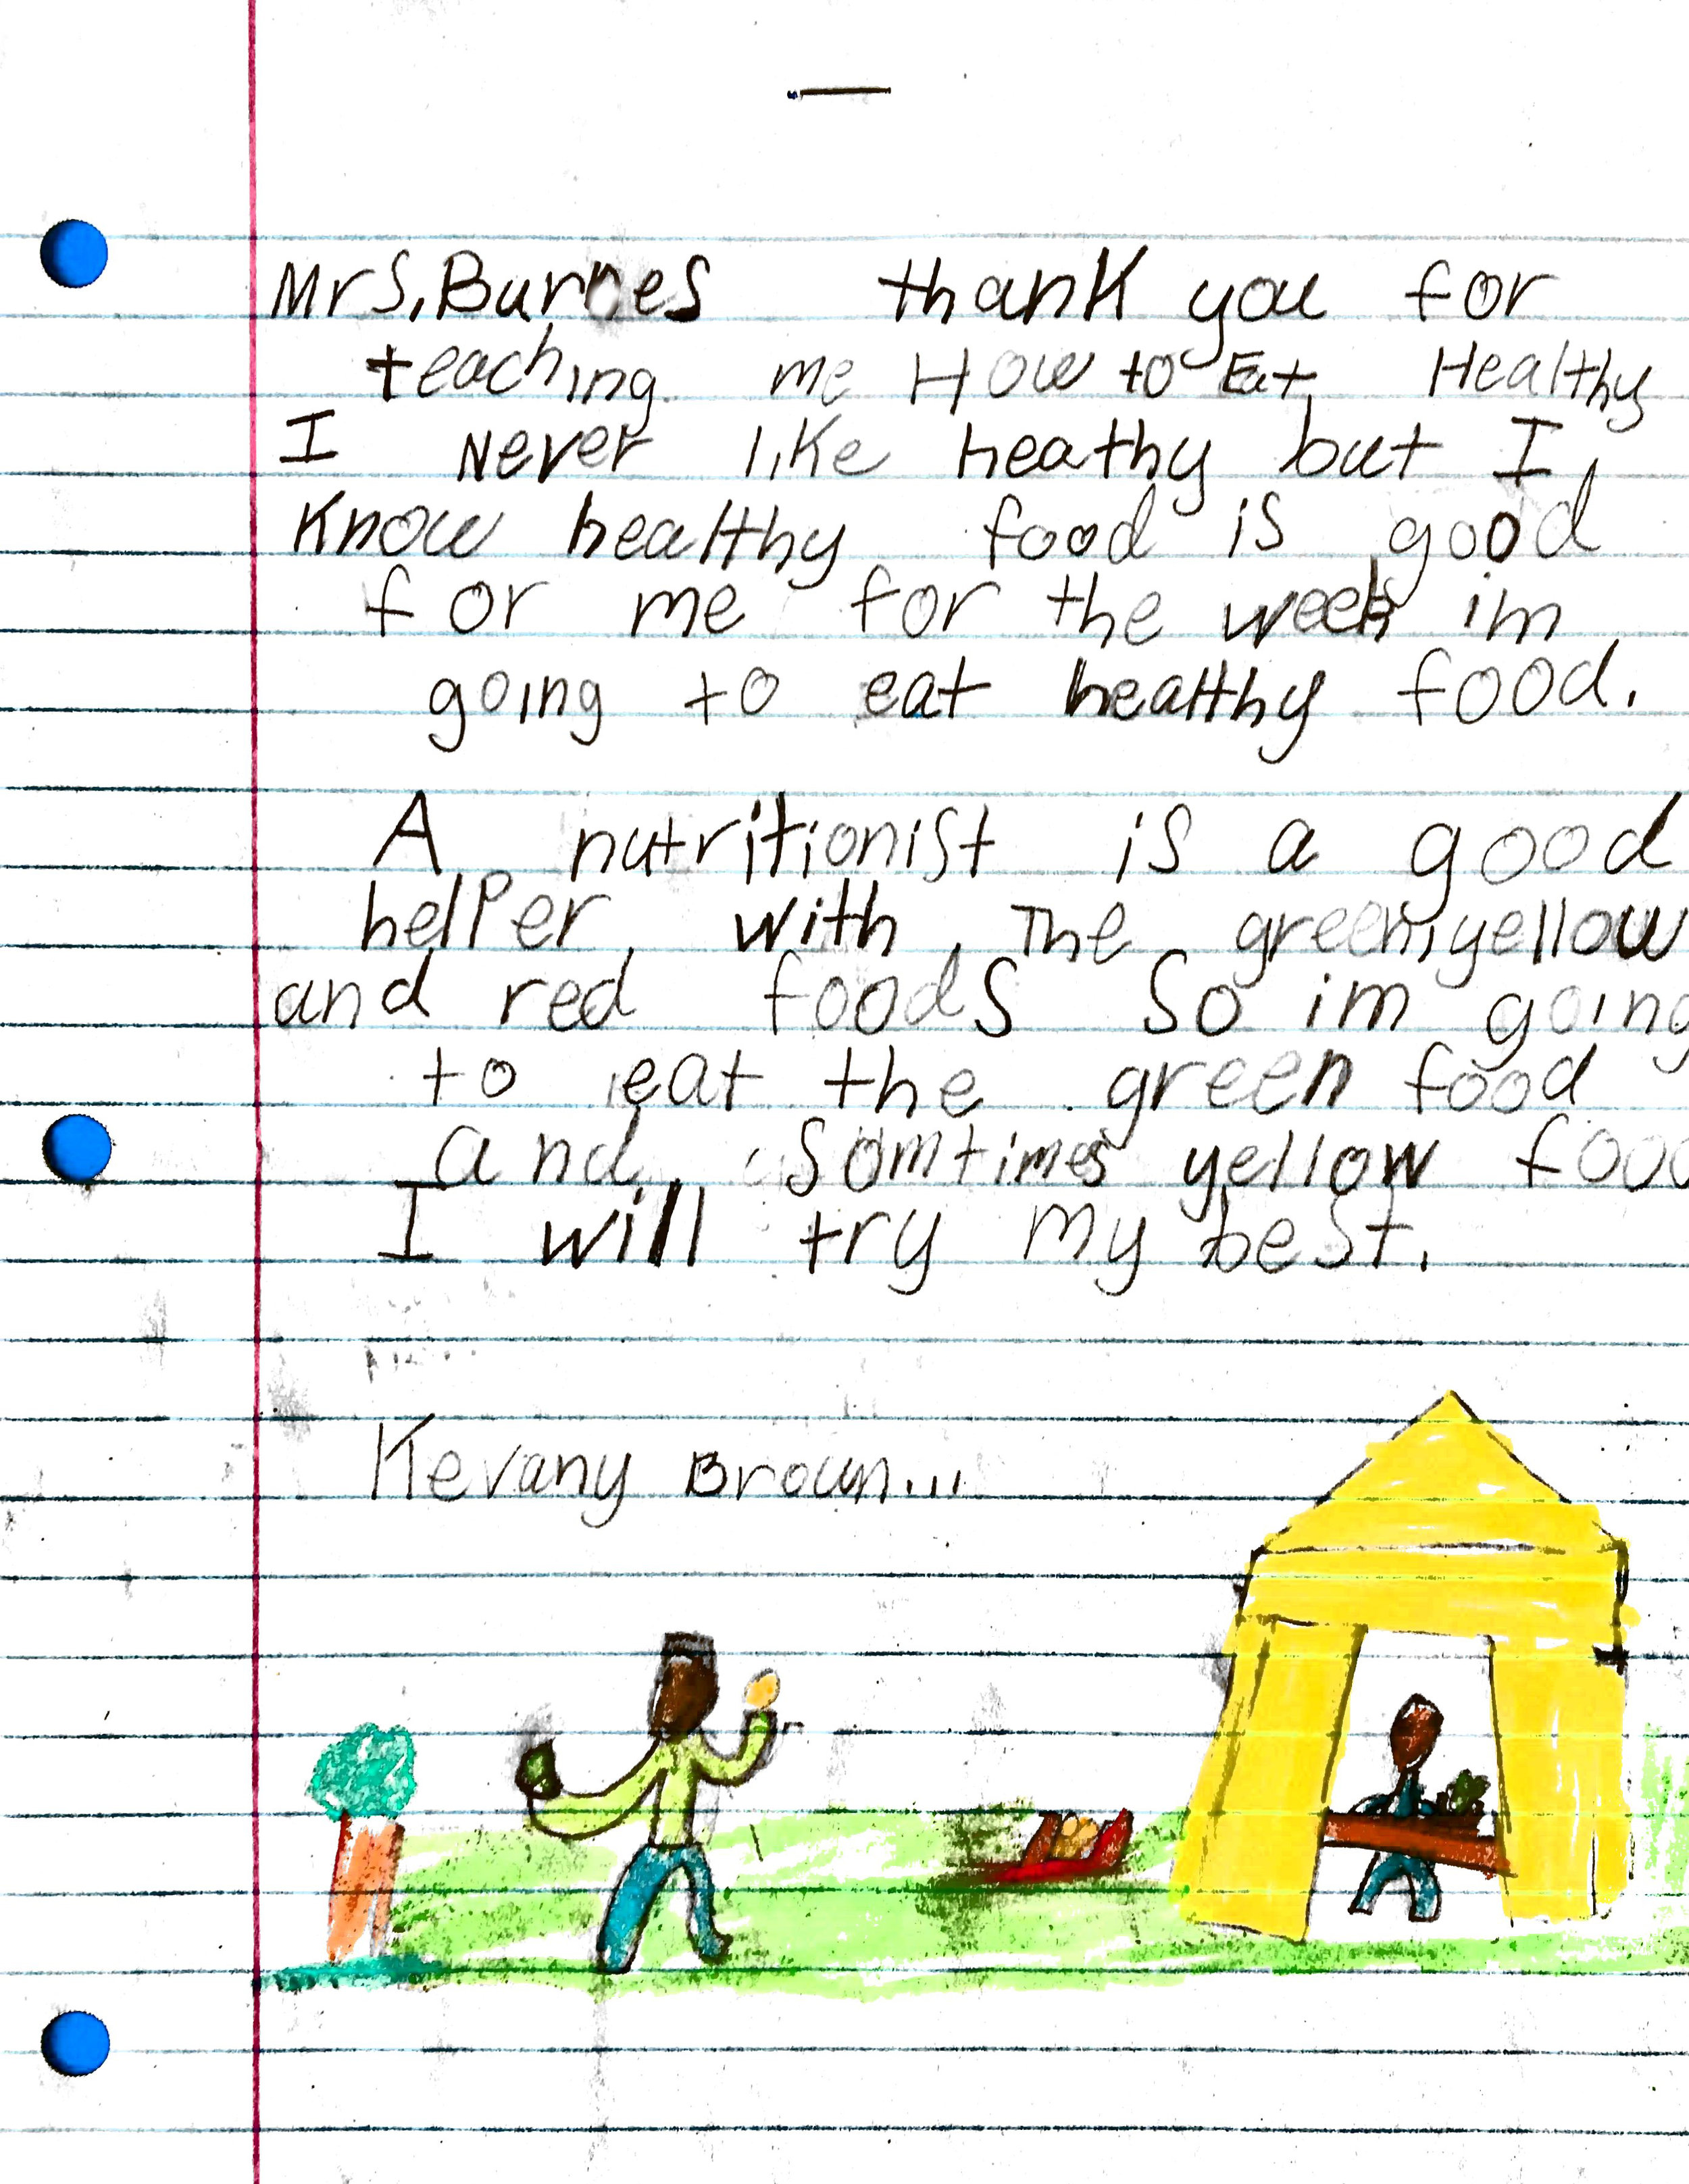 Mrs. Burnes thank you for
teaching me How to Eat Healthy
I Never like heathy but I
know healthy food is good
for me for the week im
going to eat healthy food.
A nutritionist is a good
helper with The green, yellow
and red foods So im going
to eat the green food
and somtimes yellow food
I will try my best.
Kevany Brown...